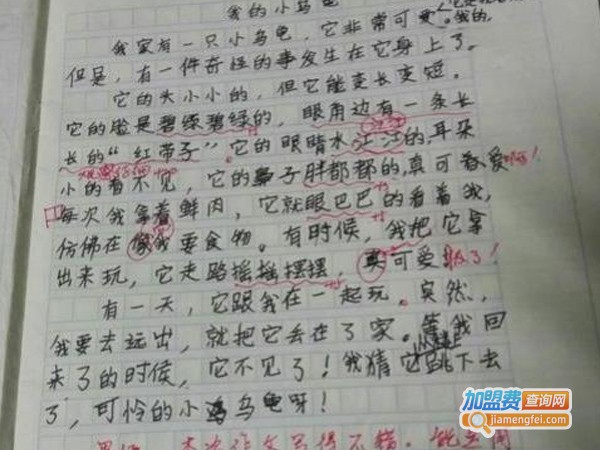 我的小乌龟
我家有一只小乌龟，它非常可爱。我的，
但是，有一件奇怪的事发生在它身上了。
它的头小小的，但它能变长变短。
它的脸是碧绿碧绿的，眼角边有一条长
长的“红带子”。它的眼睛水汪汪的，耳朵
观察仔细
小的看不见，它的鼻子胖都都的，真可爱啊！
每次我拿着鲜肉，它就眼巴巴的看着我，
仿佛在像我要食物。有时候，我把它拿
出来玩，它走路摇摇摆摆，真可爱极了！
有一天，它跟我在一起玩。突然，
我要去远出，就把它丢在了家。等我回
来了的时候，它不见了！我猜它从楼上跳下去
了，可怜的小乌龟呀！
本次作文写得不错。能运用
加盟费查询网
jiamengfei.com